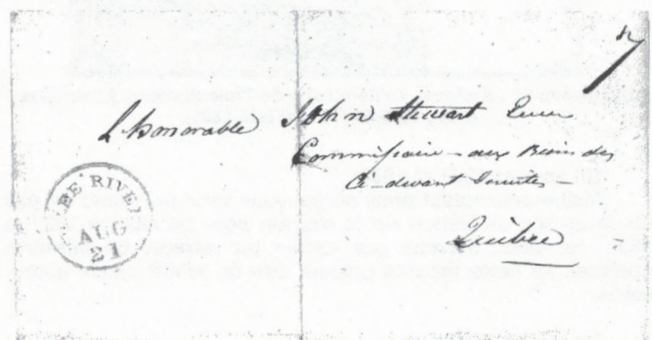 L'honorable John Stewart Ecuier
Commissaire aux Biens des
Ci-devant Jesuites
Québec
7
BE RIVE
AUG
21